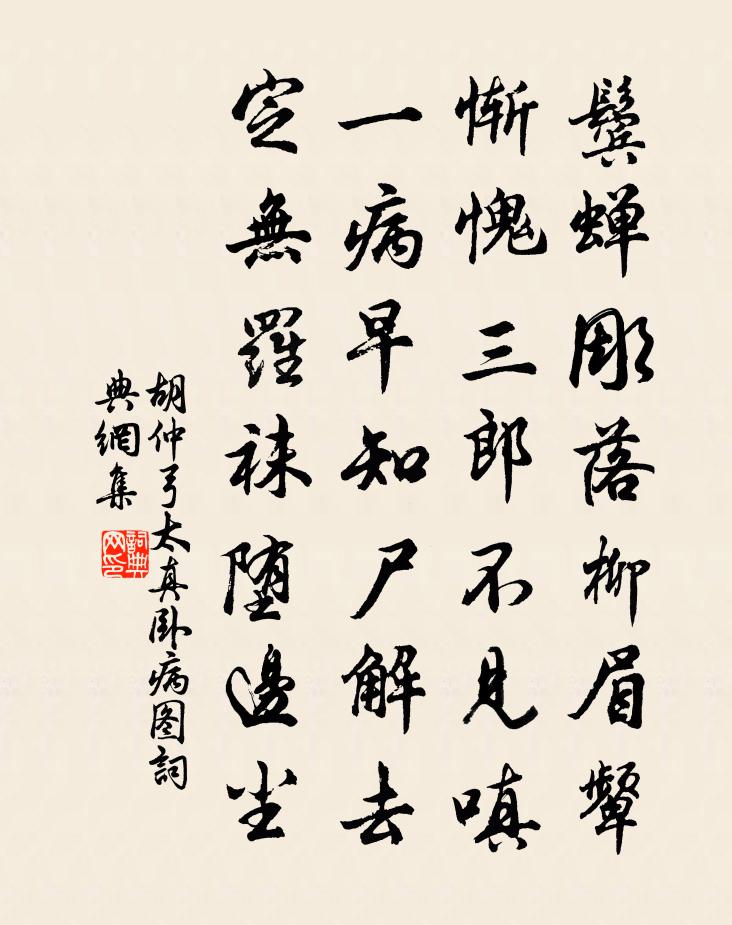 鬓蝉彫落柳眉颦
惭愧三郎不见嗔
一病早知尸解去
定無羅袜堕邊尘
胡仲弓太真卧病图詞
典網集
詞典网印